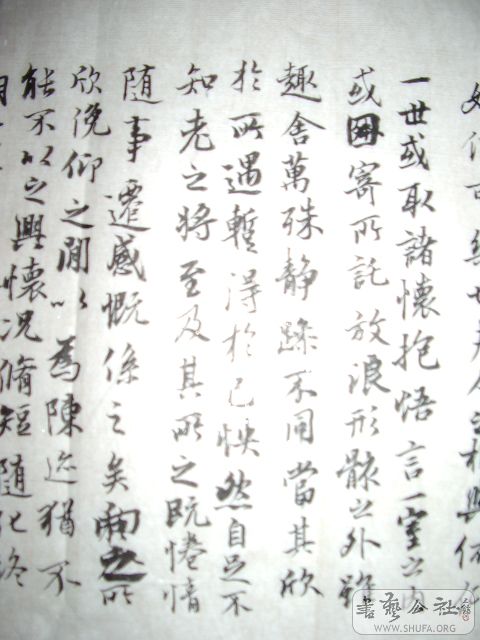 也夫人之相與
一世或取諸懷抱悟言一室之內
或因寄所託放浪形骸之外雖
趣舍萬殊静躁不同當其欣
於所遇蹔得於己怏然自足不
知老之將至及其所之既惓情
随事遷感慨係之矣向之所
欣俛仰之閒以為陳迹猶不
能不以之興懷況脩短随化終
書藝公社
WWW.SHUFA.ORG